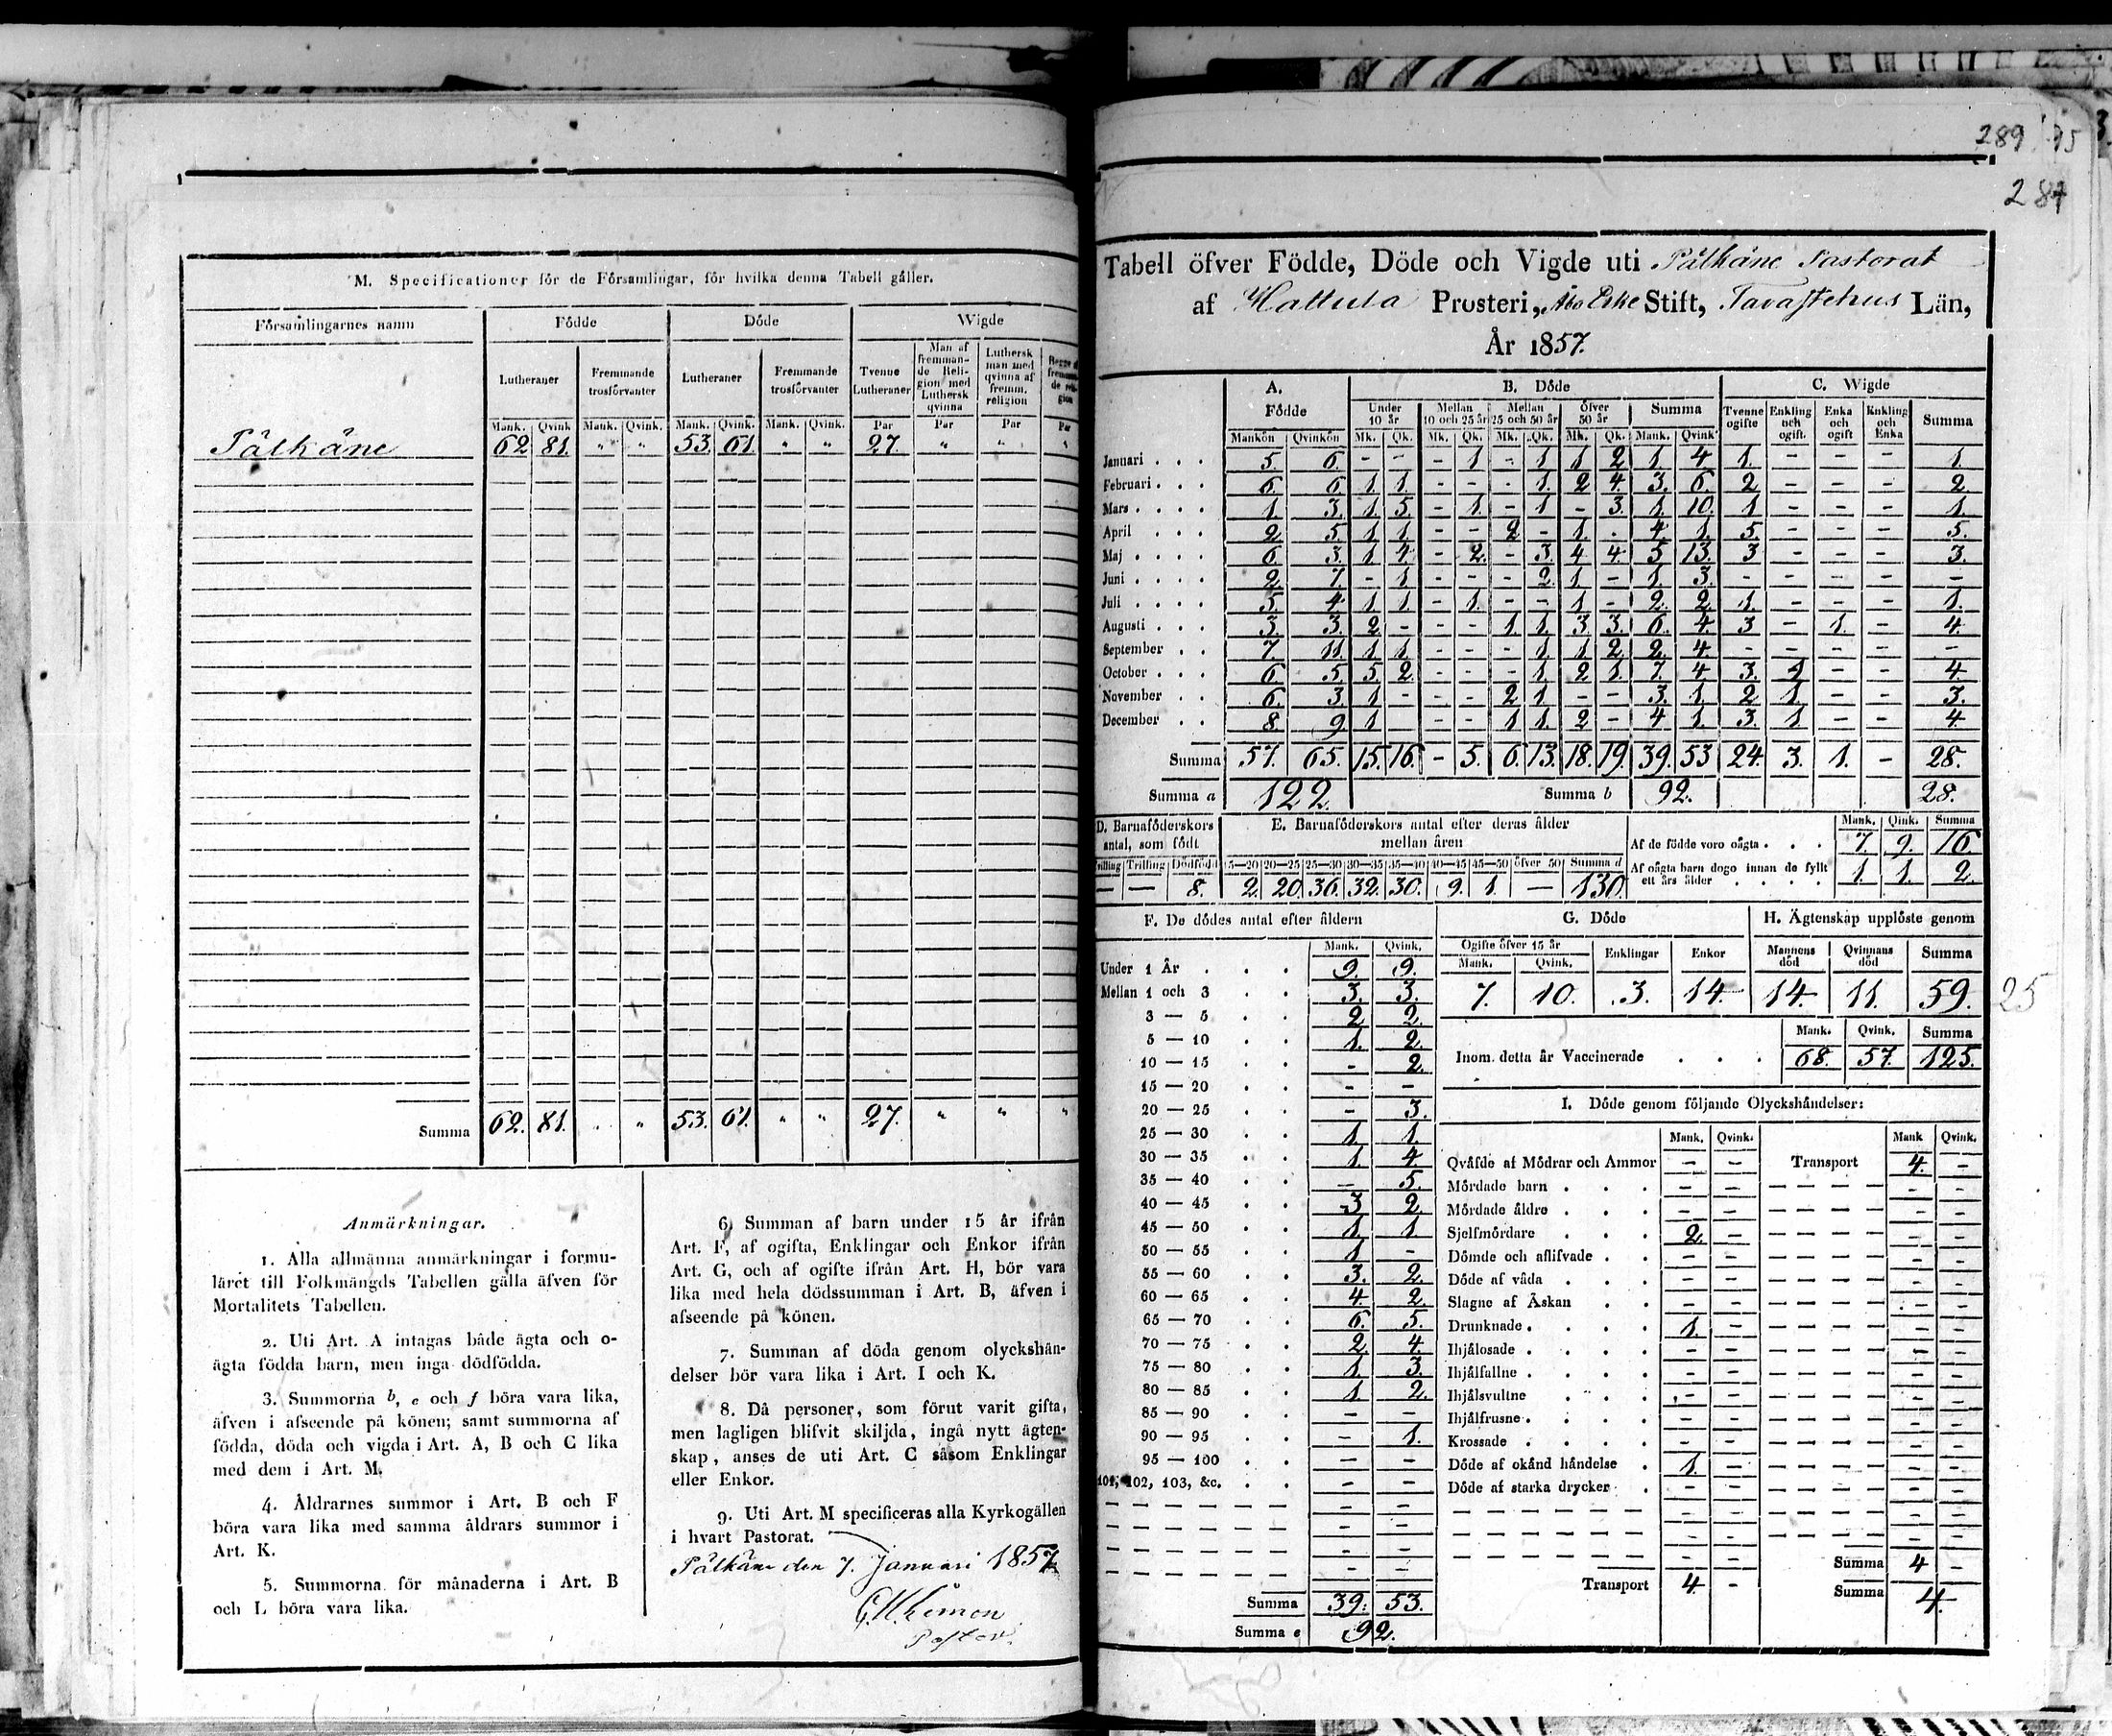 M. Specificationer för de Församlingar, för hvilka denna Tabell gäller.
Församlingarnes namn Födde Döde Wigde
Lutheraner Fremmande trosförvanter Lutheraner Fremmande trosförvanter Tvenne Lutheraner Man af fremmande Religion med Luthersk qvinna Luthersk man med qvinna af fremm. religion
Mank. Qvink Mank. Qvink. Mank. Qvink. Mank. Qvink. Par Par Par Par
Pälkäne 62 81. " " 53. 61. " " 27. " " "
Summa 62. 81. " " 53. 61. " " 27. " " "
Anmärkningar.
1. Alla allmänna anmärkningar i formu-
läret till Folkmängds Tabellen gälla äfven för
Mortalitets Tabellen.
2. Uti Art. A intagas både ägta och o-
ägta födda barn, men inga dödfödda.
3. Summorna b, e och f böra vara lika,
äfven i afseende på könen; samt summorna af
födda, döda och vigda i Art. A, B och C lika
med dem i Art. M.
4. Åldrarnes summor i Art. B och F
böra vara lika med samma åldrars summor i
Art. K.
5. Summorna för månaderna i Art. B
och L böra vara lika.
6. Summan af barn under 15 år ifrån
Art. F, af ogifta, Enklingar och Enkor ifrån
Art. G, och af ogifte ifrån Art. H, bör vara
lika med hela dödssumman i Art. B, äfven i
afseende på könen.
7. Summan af döda genom olyckshän-
delser bör vara lika i Art. I och K.
8. Då personer, som förut varit gifta,
men lagligen blifvit skiljda, ingå nytt ägten-
skap, anses de uti Art. C såsom Enklingar
eller Enkor.
9. Uti Art. M specificeras alla Kyrkogällen
i hvart Pastorat.
Pälkäne den 7. Januari 1857
Pastor.
289
Tabell öfver Födde, Döde och Vigde uti Pälkäne Pastorat
af Hattula Prosteri, Åbo Erke Stift, Tavastehus Län,
År 1857.
A. Födde B. Döde C. Wigde
Under 10 år Mellan 10 och 25 år Mellan 25 och 50 år öfver 50 år Summa Tvenne ogifte Enkling och ogift. Enka och ogift Enkling och Enka Summa
Mankön Qvinkön Mk. Qk. Mk. Qk. Mk. Qk. Mk. Qk. Mank. Qvink
Januari 5. 6. - - - 1 - 1 1 2 1. 4 1. - - - 1.
Februari 6. 6. 1 1. - - - 1. 2 4. 3. 6. 2 - - - 2
Mars 1 3. 1 5 - 1 - 1 - 3. 1. 10. 1 - - - 1.
April 2 5 1 1 - - 2 - 1. . 4 1. 5. - - - 5.
Maj 6. 3. 1 4. - 2. - 3. 4 4. 5 13. 3 - - - 3.
Juni 2 7. - 1 - - - 2. 1. - 1. 3. - - - - -
Juli 5. 4 1 1. - 1. - - 1 - 2. 2. 1. - - - 1.
Augusti 3. 3. 2 - - - 1. 1. 3. 3. 6. 4. 3 - 1. - 4.
September 7. 11. 1 1. - - - 1 1 2 2. 4 - - - - -
October 6. 5. 5 2. - - - 1. 2 1. 7. 4 3. 1 - - 4.
November 6. 3. 1 - - - 2 1 - - 3. 1. 2 1. - - 3.
December 8. 9 1 - - 1 1. 2 - 4 1. 3. 1 - - 4
Summa 57. 65. 15. 16. - 5. 6. 13. 18. 19. 39. 53 24. 3. 1. - 28.
Summa a 122. Summa b 92. 28.
D. Barnaföderskors antal, som födt E. Barnaföderskors antal efter deras ålder mellan åren Mank. Qink. Summa
Af de födde voro oägta 7. 9. 16.
Trilling Dödfödt 15—20 20—25 25—30 30—35 35—40 40—45 45—50 öfver 50 Summa d
Af oägta barn dogo innan de fyllt ett års ålder 1. 1. 2.
— — 8. 2. 20. 36. 32. 30. 9. 1. — 130.
F. De dödes antal efter åldern
Mank. Qvink.
Under 1 År 9. 9.
Mellan 1 och 3 3. 3.
3 — 5 2 2.
5 — 10 1. 2.
10 — 15 - 2.
15 — 20 - -
20 — 25 - 3.
25 — 30 1 1.
30 — 35 1. 4.
35 — 40 — 5.
40 — 45 3 2.
45 — 50 1 1.
50 — 55 1 -
55 — 60 3. 2.
60 — 65 4. 2.
65 — 70 6. 5.
70 — 75 2. 4.
75 — 80 1. 3.
80 — 85 1. 2.
85 — 90 - -
90 — 95 - 1.
95 — 100 - -
101, 102, 103, &c. - -
Summa 39. 53.
Summa e 92.
G. Döde H. Ägtenskap upplöste genom
Ogifte öfver 15 år Enklingar Enkor Mannens död Qvinnans död Summa
Mank. Qvink.
7. 10. 3. 14. 14. 11. 59. 25
Mank. Qvink. Summa
Inom detta år Vaccinerade 68. 57. 125.
I. Döde genom följande Olyckshändelser:
Mank. Qvink. Mank Qvink.
Qväfde af Mödrar och Ammor - - Transport 4. -
Mördade barn - -
Mördade äldre - -
Sjelfmördare 2. -
Dömde och aflifvade - -
Döde af våda - -
Slagne af Åskan - -
Drunknade 1. -
Ihjälosade - -
Ihjälfallne - -
Ihjälsvultne - -
Ihjälfrusne - -
Krossade - -
Döde af okänd händelse 1. -
Döde af starka drycker - -
Summa 4 -
Transport 4. - Summa 4.